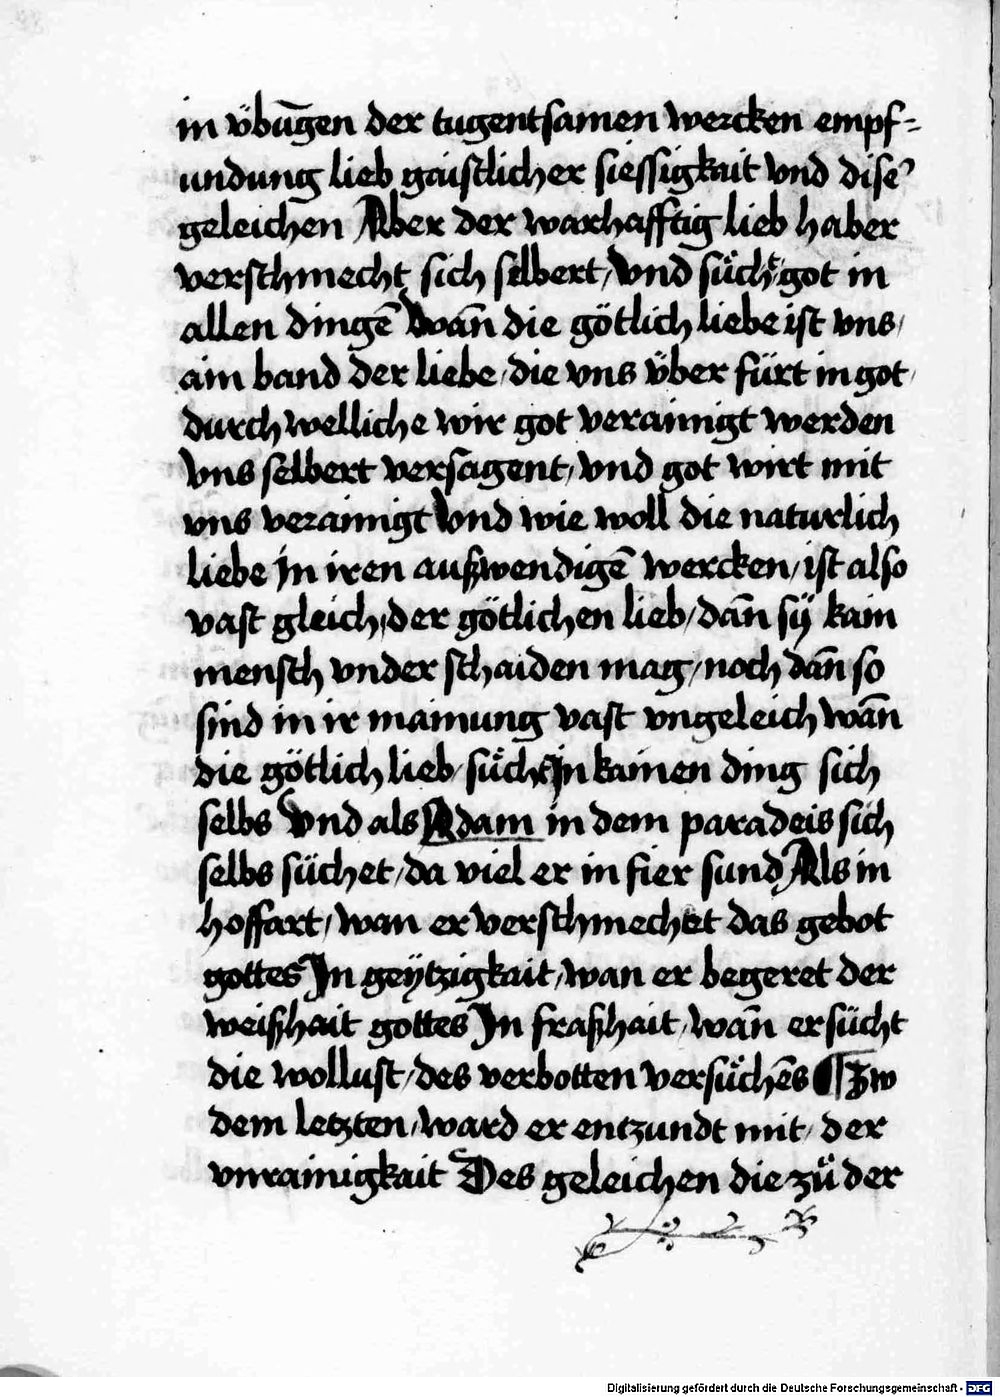 in übūgen der tugentsamen wercken empf=
undung lieb gaistlicher siessigkait vnd dise
geleichen Aber der warhafftig lieb haber
verschmecht sich selbert / vnd sücht got in
allen dingē Wān die götlich liebe ist vns /
ain band der liebe / die vns über fürt in got /
durch welliche wir got verainigt werden
vns selbert versagent / vnd got wirt mit
vns verainigt Vnd wie woll die naturlich
liebe Jn iren außwendigē wercken / ist also
vast gleich / der götlichen lieb / dān sÿ kain
mensch vnder schaiden mag / noch dān so
sind in ir mainung vast vngeleich wān
die götlich lieb / sücht Jn kainen ding sich
selbs Vnd als Adam in dem paradeis sich
selbs süchet / da viel er in fier sund Als in
hoffart / wan er verschmechtet das gebot
gottes Jn geÿtzigkait / wan er begeret der
weißhait gottes Jn fraßhait / wān er sücht
die wollust / des verbotten versüchēs ¶ Zw
dem letzten / ward er entzundt mit / der
vnrainigkait Des geleichen die zü der
Digitalisierung gefördert durch die Deutsche Forschungsgemeinschaft - DFG